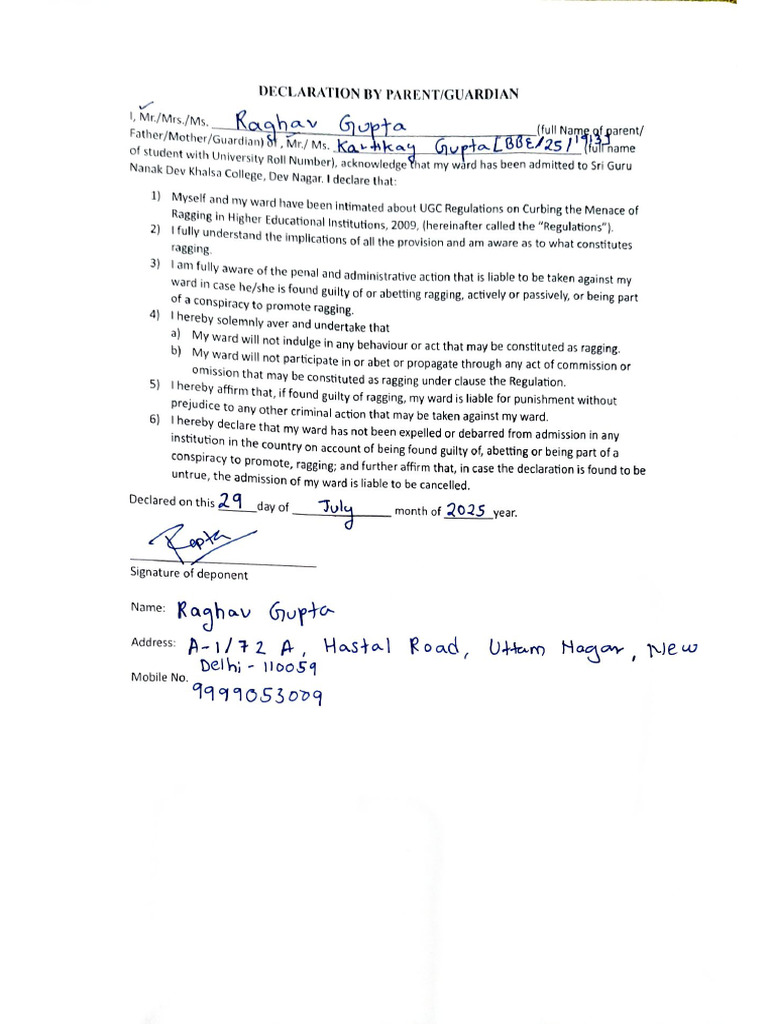 DECLARATION BY PARENT/GUARDIAN
I, Mr./Mrs./Ms. Raghav Gupta (full Name of parent/
Father/Mother/Guardian) of , Mr./ Ms. Kartikay Gupta [BBE/25/193] (full name
of student with University Roll Number), acknowledge that my ward has been admitted to Sri Guru
Nanak Dev Khalsa College, Dev Nagar. I declare that:
1) Myself and my ward have been intimated about UGC Regulations on Curbing the Menace of
Ragging in Higher Educational Institutions, 2009, (hereinafter called the "Regulations").
2) I fully understand the implications of all the provision and am aware as to what constitutes
ragging.
3) I am fully aware of the penal and administrative action that is liable to be taken against my
ward in case he/she is found guilty of or abetting ragging, actively or passively, or being part
of a conspiracy to promote ragging.
4) I hereby solemnly aver and undertake that
a) My ward will not indulge in any behaviour or act that may be constituted as ragging.
b) My ward will not participate in or abet or propagate through any act of commission or
omission that may be constituted as ragging under clause the Regulation.
5) I hereby affirm that, if found guilty of ragging, my ward is liable for punishment without
prejudice to any other criminal action that may be taken against my ward.
6) I hereby declare that my ward has not been expelled or debarred from admission in any
institution in the country on account of being found guilty of, abetting or being part of a
conspiracy to promote, ragging; and further affirm that, in case the declaration is found to be
untrue, the admission of my ward is liable to be cancelled.
Declared on this 29 day of July month of 2025 year.
Signature of deponent
Name: Raghav Gupta
Address: A-1/72 A, Hastal Road, Uttam Nagar, New
Delhi - 110059
Mobile No. 9999053009